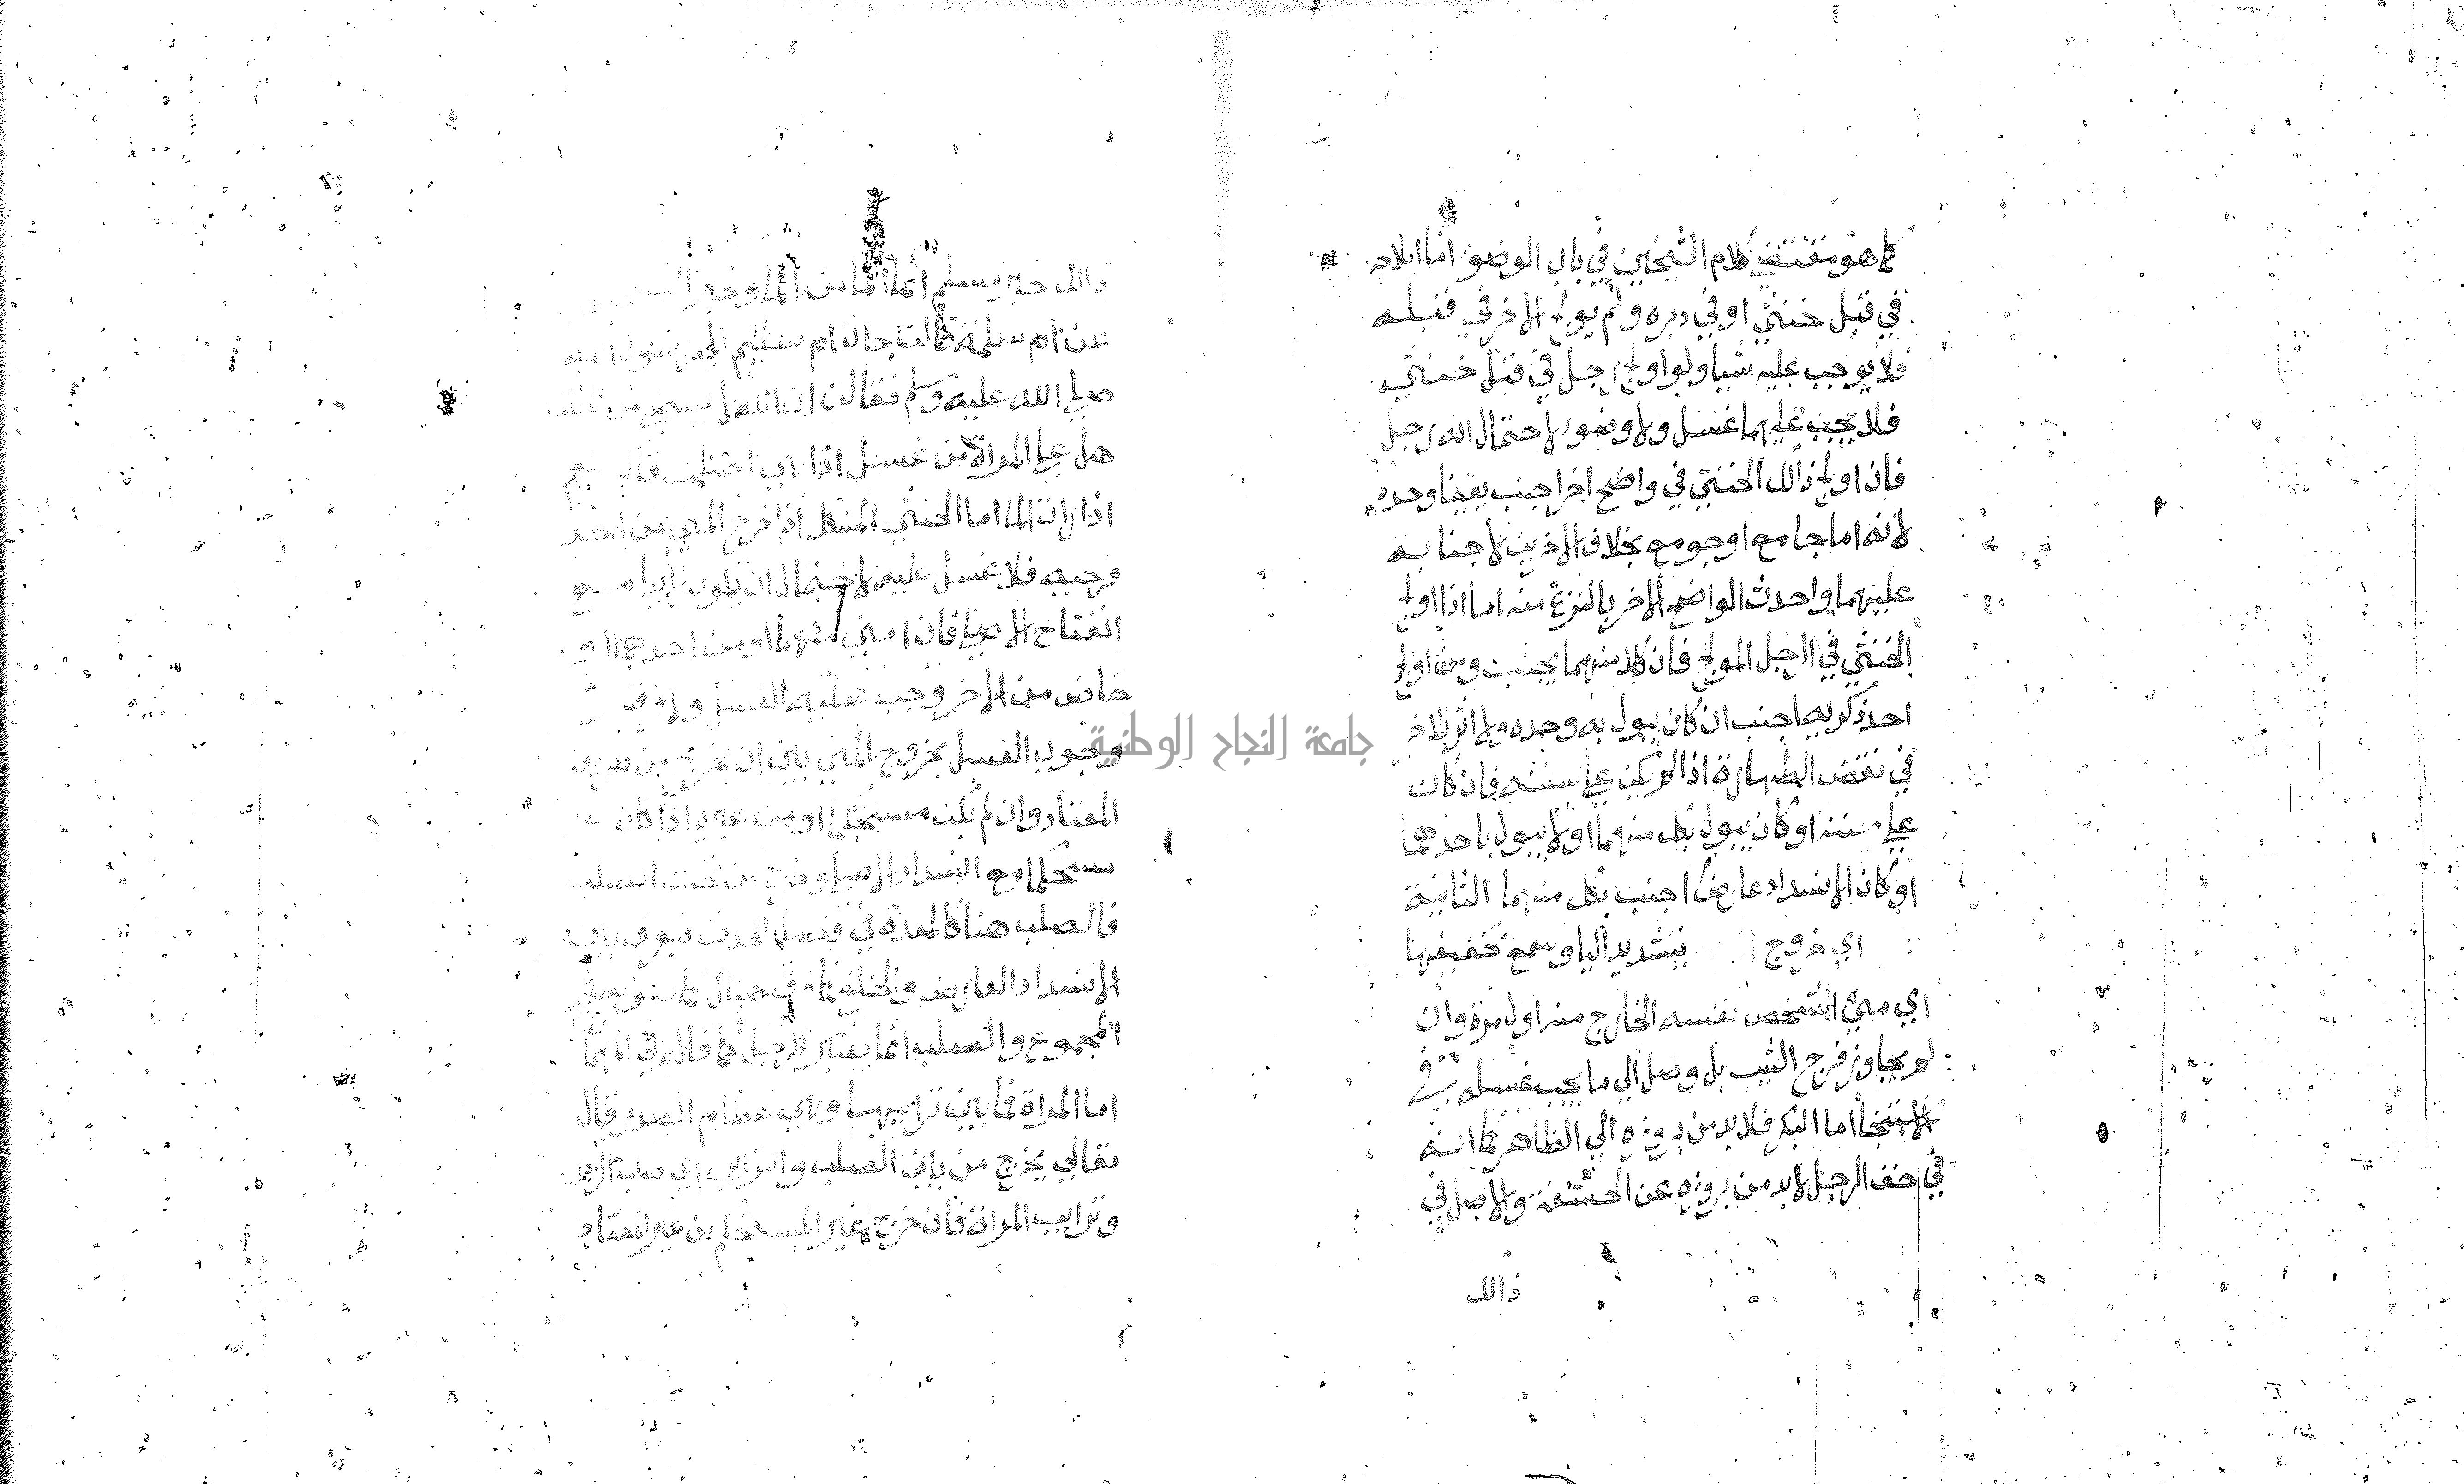 كما هو مقتضي كلام الشيخين في باب الوضوء اما ايلاجه
في قبل خنثي او في دبره ولم يولج الاخر في قبله
فلا يوجب عليه شيا ولو اولج رجل في قبل خنثي
فلا يجب عليهما غسل ولا وضوء لاحتمال انه رجل
فان اولج ذالك الخنثي في واضح اخر اجنب يقينا وحده
لانه اما جامع او جومع بخلاف الاخرين لا جنابة
عليهما واحدث الواضح الاخر بالنزع منه اما اذا اولج
الخنثي في الرجل المولج فان كلا منهما يجنب ومن اولج
احد ذكريه اجنب ان كان يبول به وحده ولا اثر للاخر
في نقض الطهارة اذا لم يكن علي سننه فان كان
علي سننه او كان يبول بكل منهما او لا يبول باحدهما
او كان الانسداد عارض اجنب بكل منهما الثانية
اي خروج بتشديد اليا وسمع تخفيفها
اي مني الشخص نفسه الخارج منه اول مرة وان
لم يجاوز فرج الثيب بل وصل الي ما يجب غسله في
الاستنجا اما البكر فلا بد من بروزه الي الظاهر كما انه
في حق الرجل لا بد من بروزه عن الحشفة والاصل في
ذالك
ذالك خبر مسلم انما الما من الما وخبر
عن ام سلمة قالت جات ام سليم الي رسول الله
صلي الله عليه وسلم فقالت ان الله لا يستحي من الحق
هل علي المراة من غسل اذا هي احتلمت قال نعم
اذا رات الما اما الخنثي المشكل اذا خرج المني من احد
فرجيه فلا غسل عليه لاحتمال ان يكون زايدا مع
انفتاح الاصلي فان امني منهما او من احدهما و
حاض من الاخر وجب عليه الغسل ولا فرق في
وجوب الغسل بخروج المني بين ان يخرج من طريقه
المعتاد وان لم يكن مستحكما او من غيره اذا كان
مستحكما مع انسداد الاصلي وخرج من تحت الصلب
فالصلب هنا كالمعدة في فصل الحدث فيفرق بين
الانسداد العارض والخلقي كما فرق هناك كما صوبه في
المجموع والصلب انما يعتبر للرجل كما قاله في المهمات
اما المراة فما بين ترايبها وهي عظام الصدر قال
تعالي يخرج من بين الصلب والترايب اي صلب الرجل
وترايب المراة فان خرج غير المستحكم من غير المعتاد
جامعة النجاح الوطنية